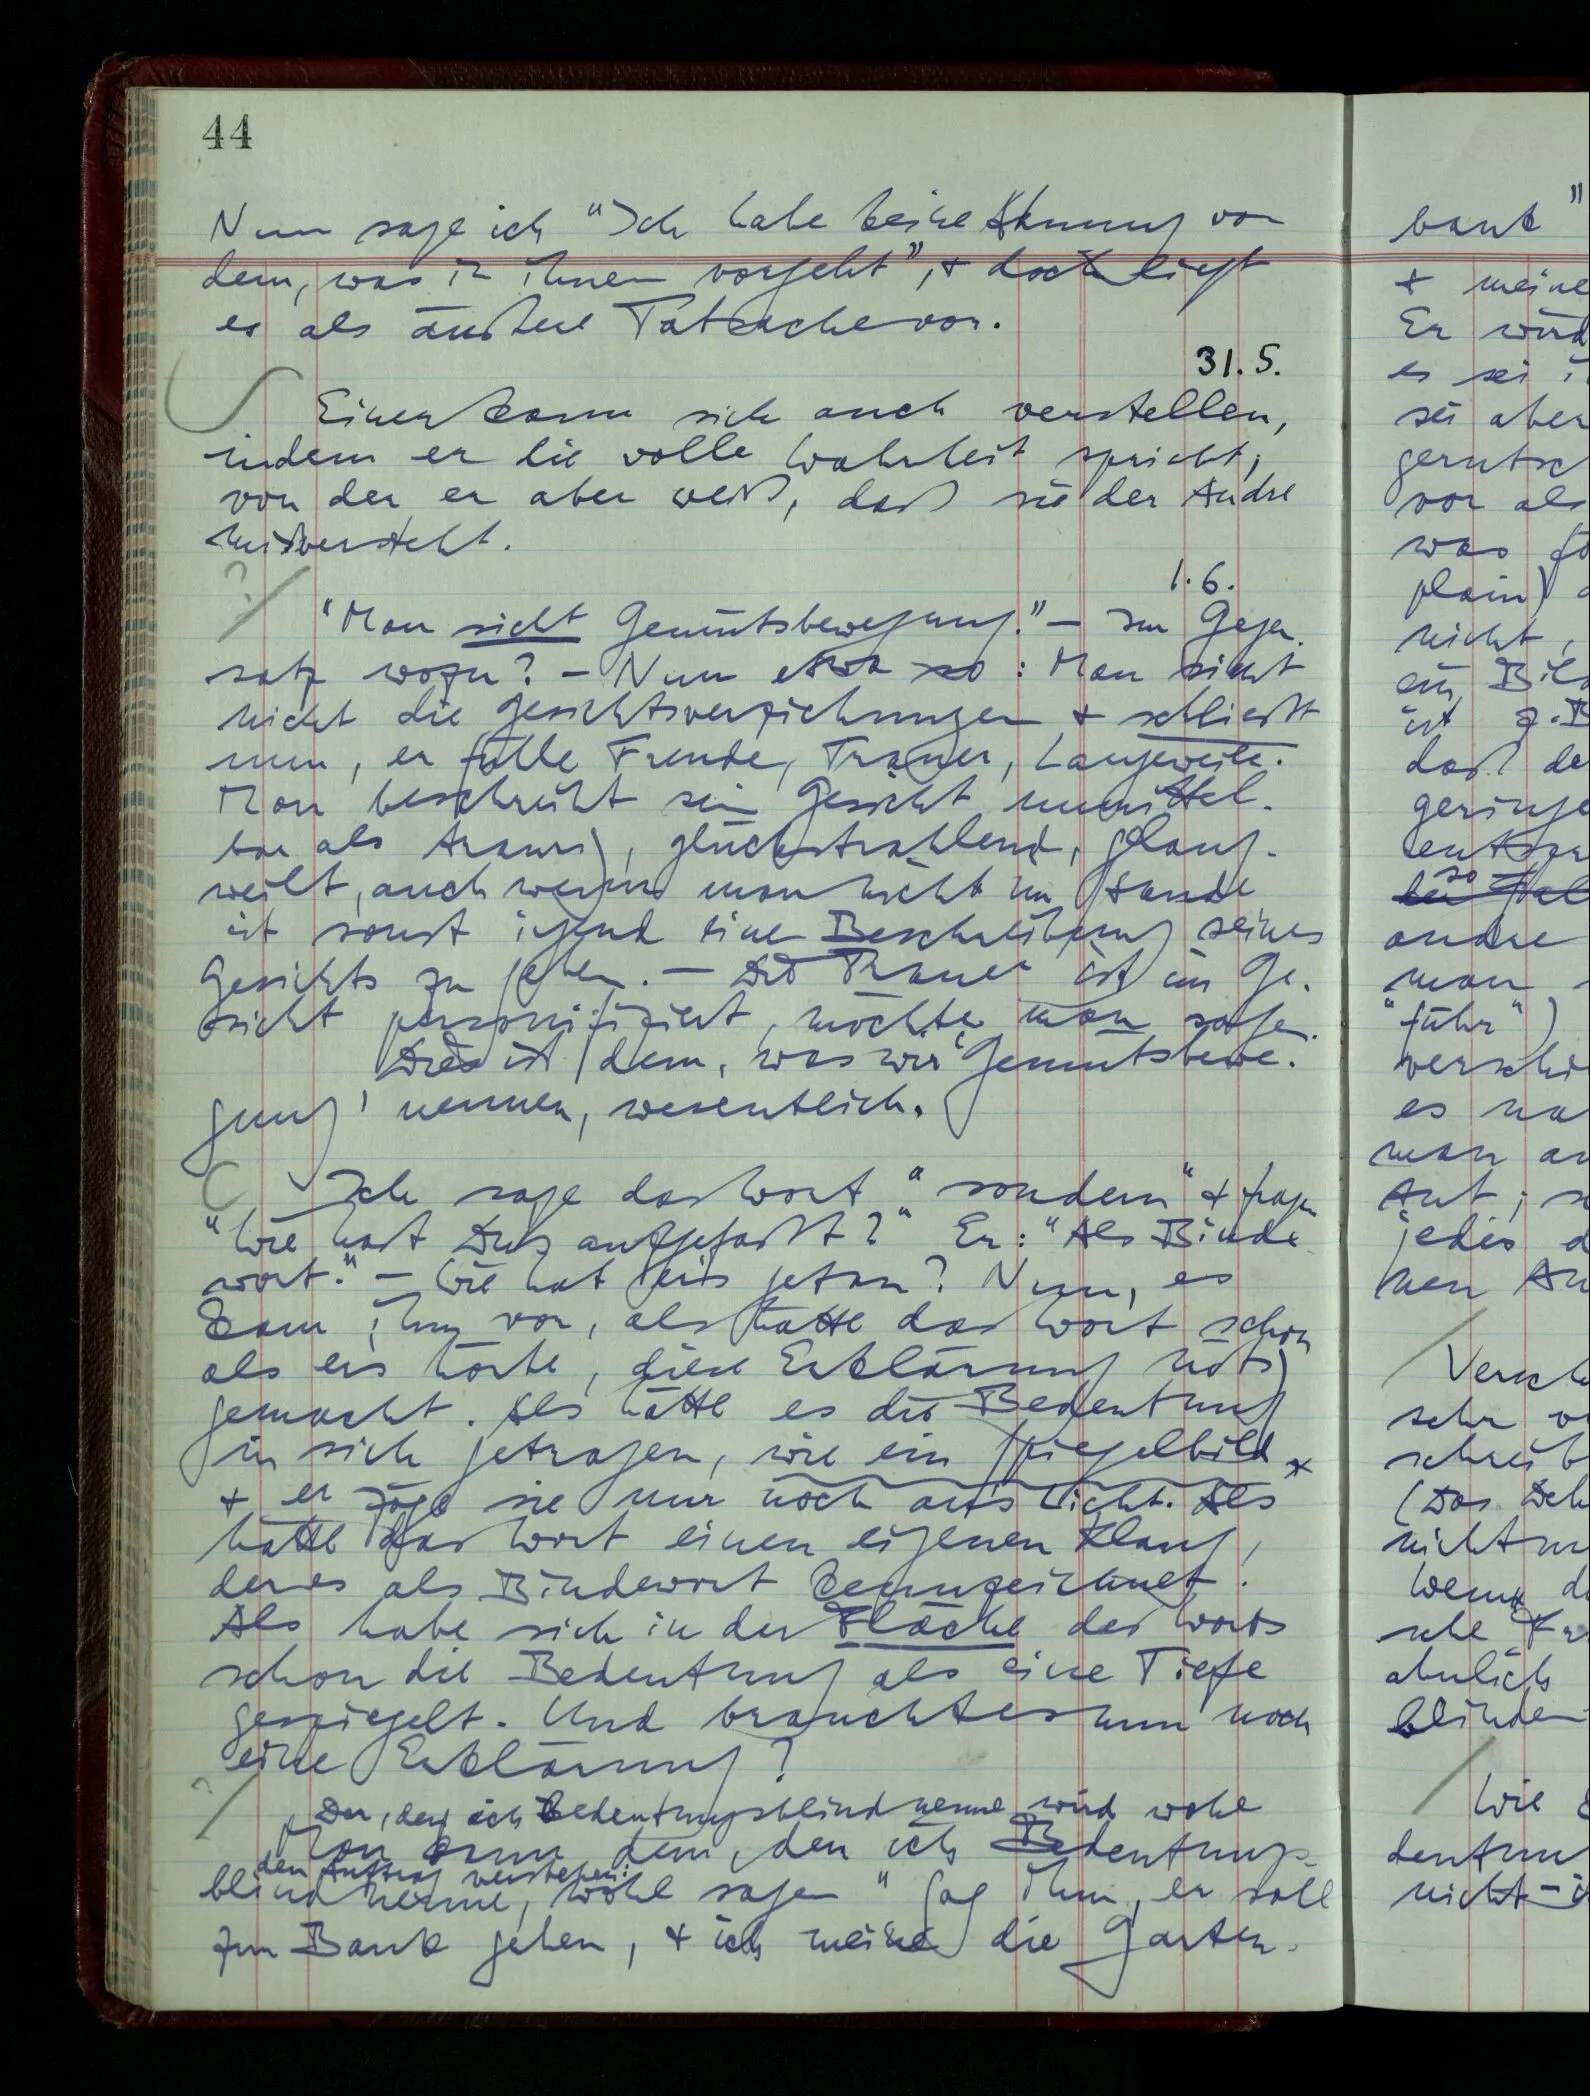 44
Nun sage ich "Ich habe keine Ahnung von
dem, was in ihnen vorgeht", + doch liegt
es als äußere Tatsache vor.
31.5.
Einer kann sich auch verstellen,
indem er die volle Wahrheit spricht,
von der er aber weiß, daß sie der Andre
mißversteht.
?
1.6.
"Man sieht Gemütsbewegung." – Im Gegen-
satz wozu? – Nun etwa so: Man sieht
nicht die Gesichtsverziehungen + schließt
nun, er fühle Freude, Trauer, Langeweile.
Man beschreibt sein Gesicht unmittel-
bar als traurig, glückstrahlend, gelang-
weilt, auch wenn man nicht im Stande
ist sonst irgend eine Beschreibung seines
Gesichts zu geben. – Die Trauer ist im Ge-
sicht personifiziert, möchte man sagen.
Dies ist dem, was wir 'Gemütsbewe-
gung' nennen, wesentlich.
Ich sage das Wort "sondern" + frage
"Wie hast Du's aufgefaßt?" Er: "Als Binde-
wort." – Wie hat er's getan? Nun, es
kam ihm vor, als hätte das Wort schon
als er's hörte, diese Erklärung nötig
gemacht. Als hätte es die Bedeutung
in sich getragen, wie ein Spiegelbild
+ er zöge sie nur noch ans Licht. Als
hätte das Wort einen eigenen Klang,
der es als Bindewort kennzeichnet.
Als habe sich in der Fläche des Worts
schon die Bedeutung als eine Tiefe
gespiegelt. Und braucht es nun noch
eine Erklärung?
?
Der, den ich bedeutungsblind nenne, wird wohl
Man kann dem, den ich Bedeutungs-
den Auftrag verstehen:
blind nenne, wohl sagen "Sag ihm, er soll
zur Bank gehen, + ich meine die Garten-
bank"
+ meine
Er wird
es sei i
sei aber
gerutsch
vor als
was
plain)
nicht,
ein Bild
ist z.B
daß de
geringe
so
andre
man
"führ")
verschi
es
man an
Art; s
jedes d
men An
Versch
sehr
schreib
(Das
nicht
Wenn d
ähnlich
blinden
Wie
deutun
nicht – i